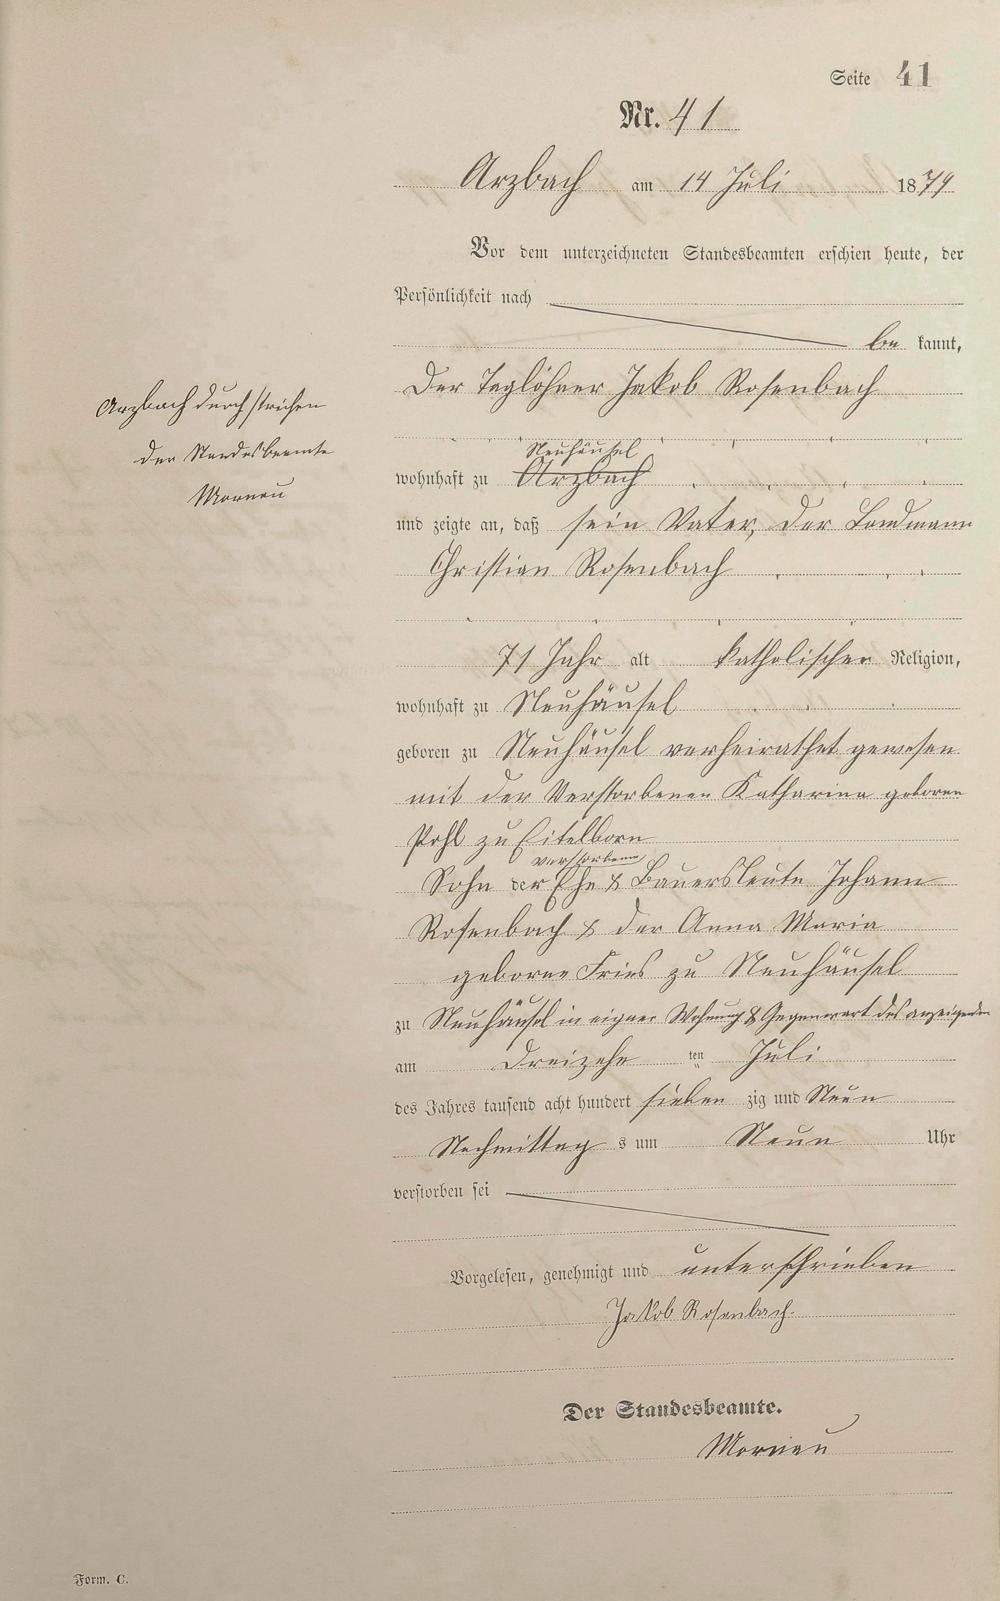 Seite 41
Nr. 41
Arzbach am 14 Juli 1879
Vor dem unterzeichneten Standesbeamten erschien heute, der
Persönlichkeit nach
be kannt,
Der Taglöhner Jakob Rosenbach
Neuhäusel
wohnhaft zu Arzbach
Arzbach durchstrichen
der Standesbeamte
Mornau
und zeigte an, daß sein Vater, der Landmann
Christian Rosenbach
71 Jahr alt katholischer Religion,
wohnhaft zu Neuhäusel
geboren zu Neuhäusel verheirathet gewesen
mit der Verstorbenen Katharina geboren
Pohl zu Eitelborn
verstorbenen
Sohn der Ehe & Bauersleute Johann
Rosenbach & der Anna Maria
geborne Fries zu Neuhäusel
zu Neuhäusel in eigner Wohnung & Gegenwart des anzeigenden
am Dreizehn ten Juli
des Jahres tausend acht hundert sieben zig und Neun
Nachmittag s um Neun Uhr
verstorben sei
Vorgelesen, genehmigt und unterschrieben
Jakob Rosenbach.
Der Standesbeamte.
Mornau
Form. C.